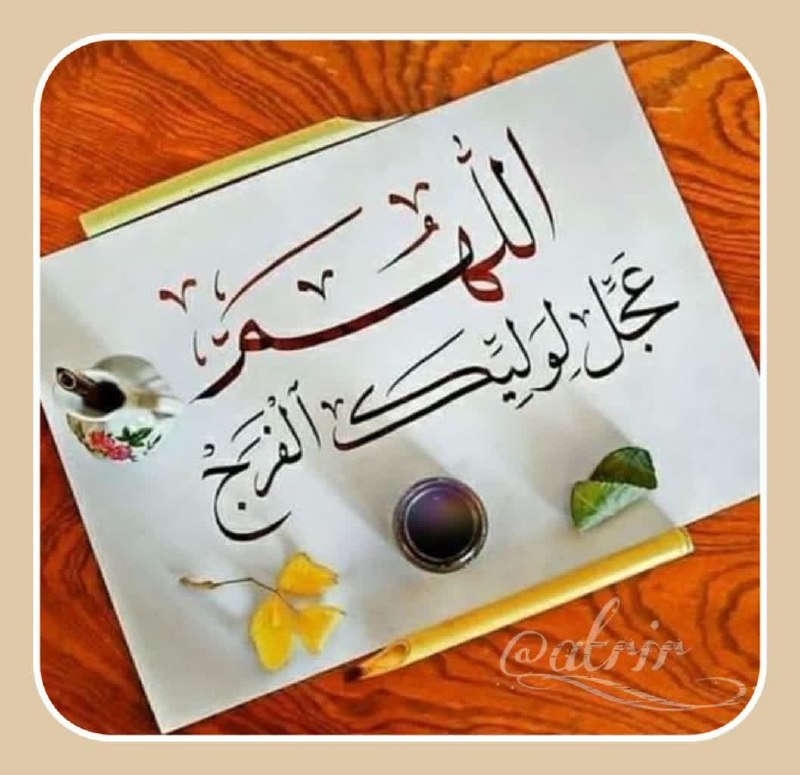 اللّٰهُمَّ
عَجِّلْ لِوَلِيِّكَ الْفَرَجْ
@atrir